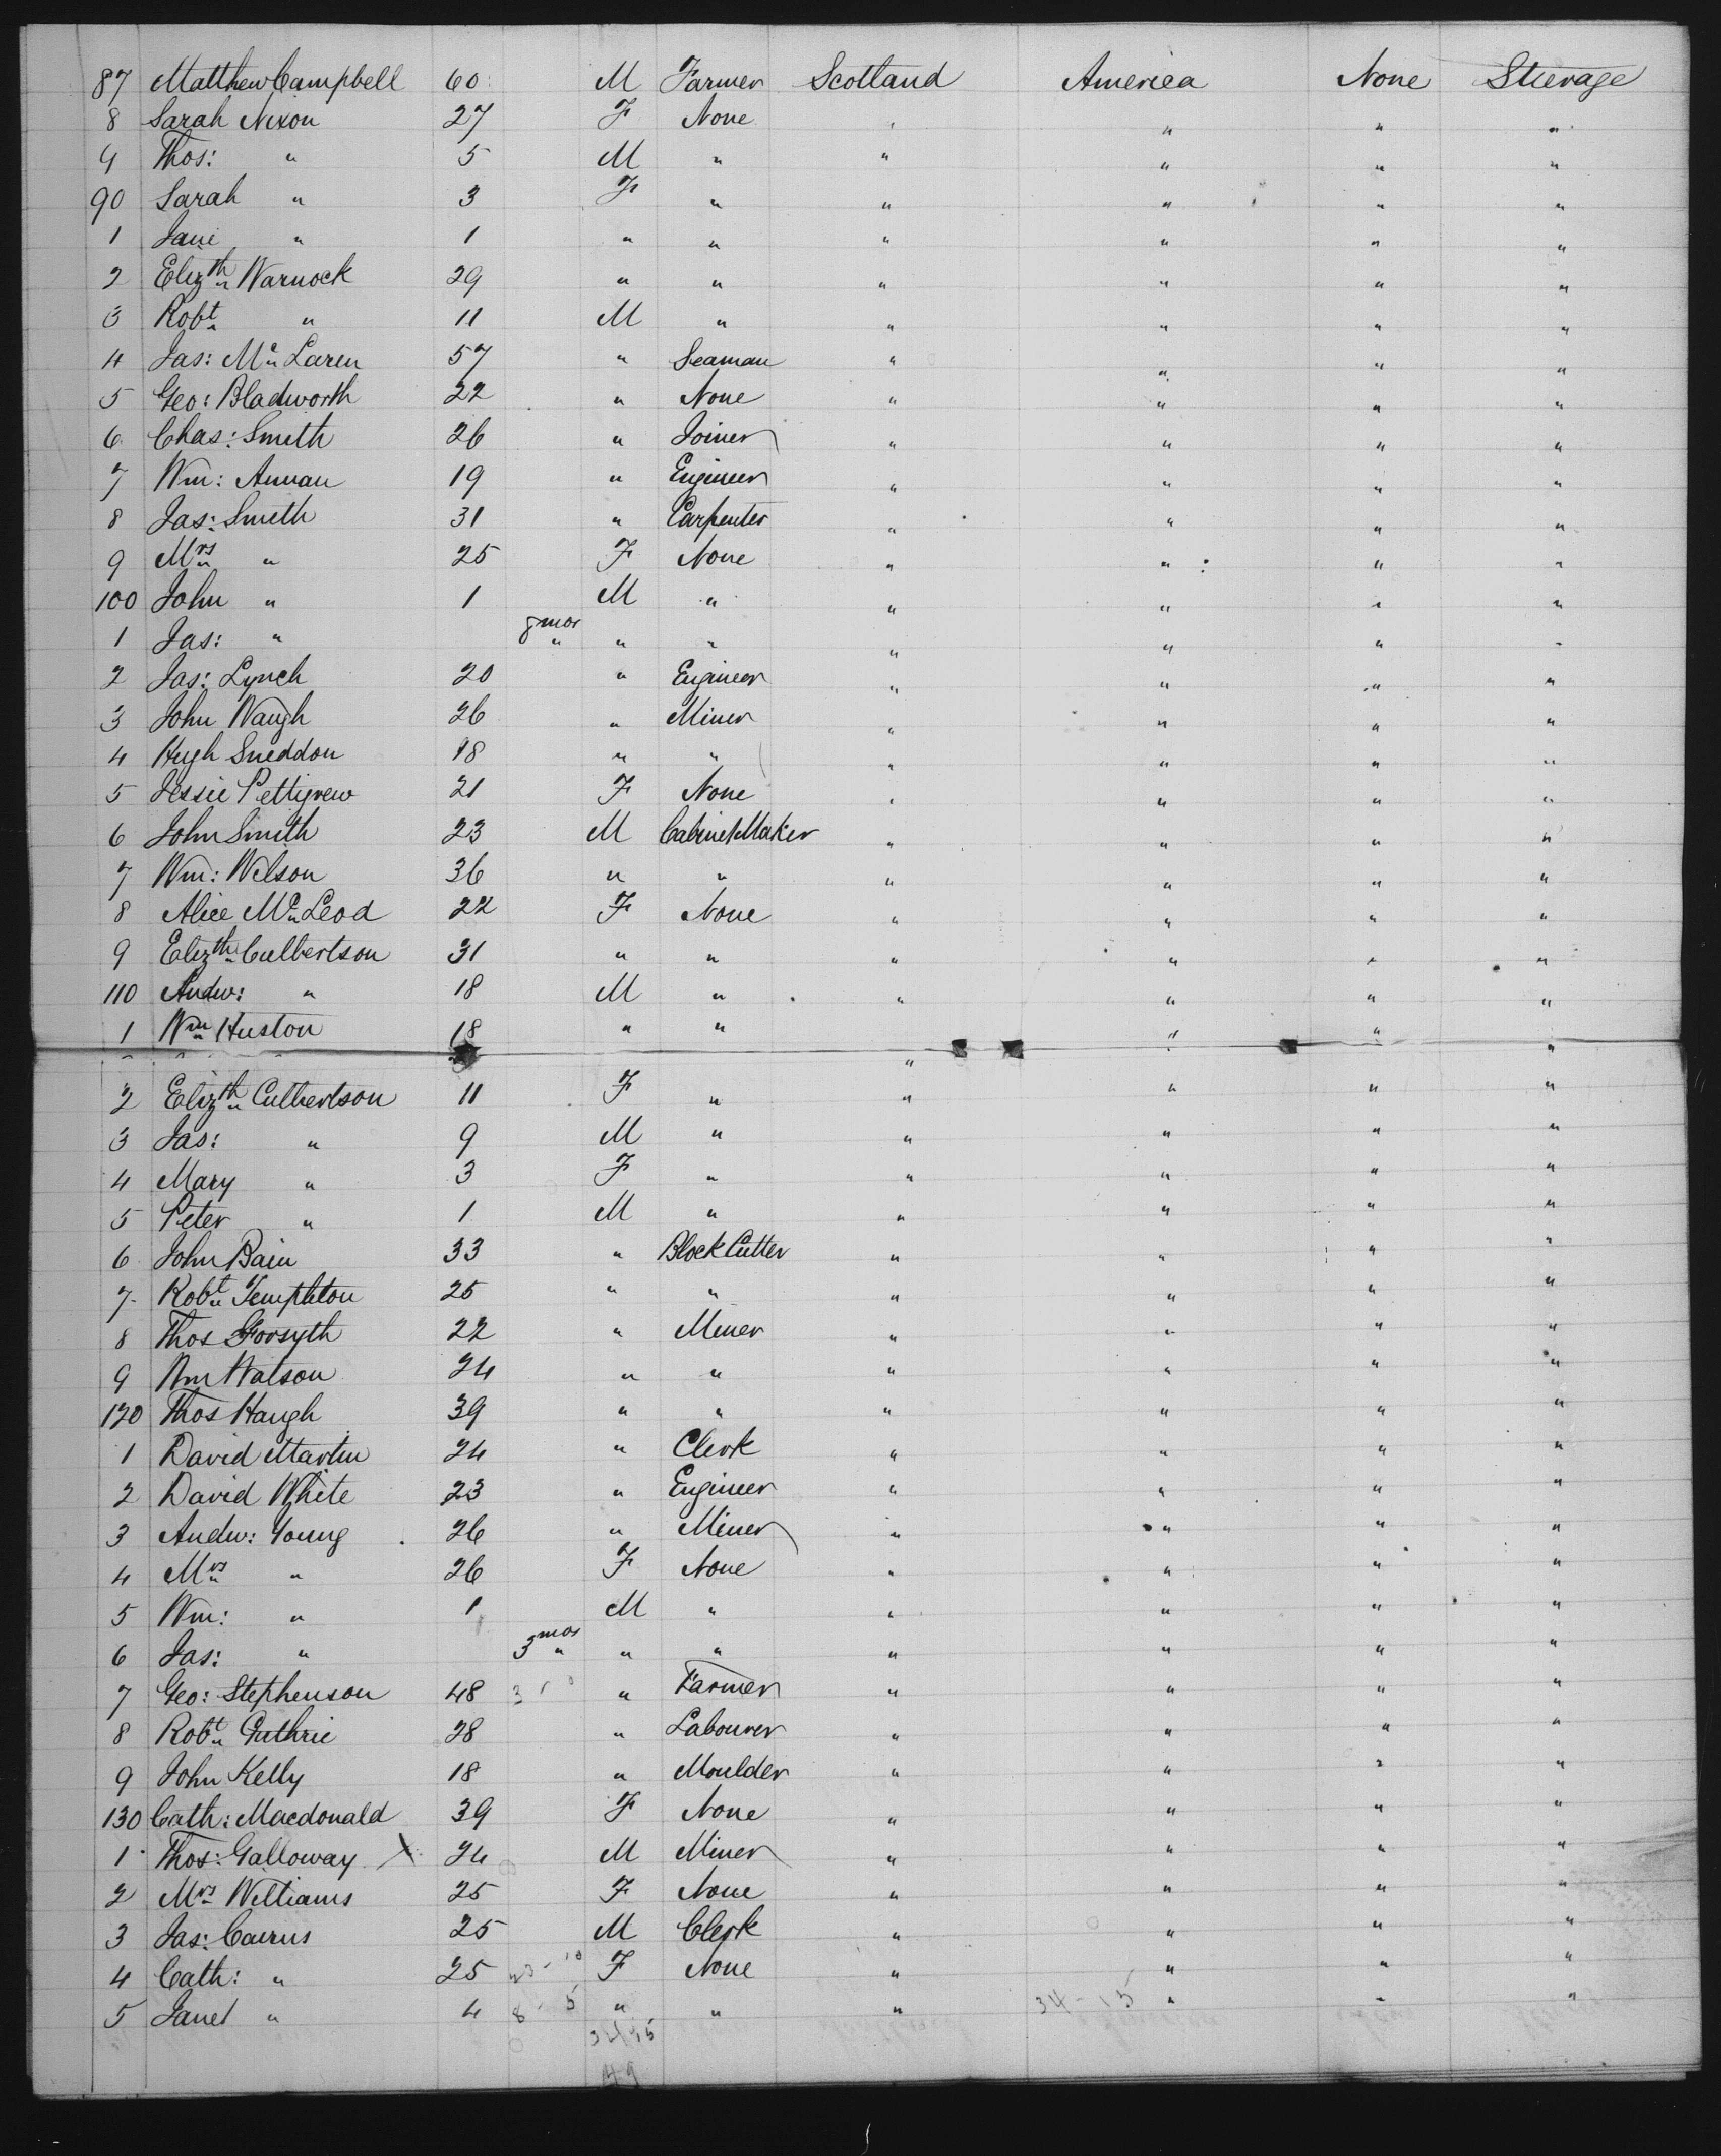 87 Matthew Campbell 60 M Farmer Scotland America None Steerage
8 Sarah Nixon 27 F None " " " "
9 Thos: " 5 M " " " " "
90 Sarah " 3 F " " " " "
1 Jane " 1 " " " " " "
2 Elizth Warnock 29 " " " " " "
3 Robt " 11 M " " " " "
4 Jas: Mc Laren 57 " Seaman " " " "
5 Geo: Bladworth 22 " None " " " "
6 Chas: Smith 26 " Joiner " " " "
7 Wm: Annan 19 " Engineer " " " "
8 Jas: Smith 31 " Carpenter " " " "
9 Mrs " 25 F None " " " "
100 John " 1 M " " " " "
1 Jas: " 8 mos " " " " " "
2 Jas: Lynch 20 " Engineer " " " "
3 John Waugh 26 " Miner " " " "
4 Hugh Sneddon 18 " " " " " "
5 Jessie Pettigrew 21 F None " " " "
6 John Smith 23 M Cabinet Maker " " " "
7 Wm: Wilson 36 " " " " " "
8 Alice Mc Leod 22 F None " " " "
9 Elizth Culbertson 31 " " " " " "
110 Andw: " 18 M " " " " "
1 Wm Huston 18 " " " " " "
2 Elizth Culbertson 11 F " " " " "
3 Jas: " 9 M " " " " "
4 Mary " 3 F " " " " "
5 Peter " 1 M " " " " "
6 John Bain 33 " Block Cutter " " " "
7 Robt Templeton 25 " " " " " "
8 Thos Forsyth 22 " Miner " " " "
9 Wm Watson 24 " " " " " "
120 Thos Haugh 39 " " " " " "
1 David Martin 24 " Clerk " " " "
2 David White 23 " Engineer " " " "
3 Andw: Young 26 " Miner " " " "
4 Mrs " 26 F None " " " "
5 Wm: " 1 M " " " " "
6 Jas: " 3 mos " " " " " "
7 Geo: Stephenson 48 " Farmer " " " "
8 Robt Guthrie 28 " Labourer " " " "
9 John Kelly 18 " Moulder " " " "
130 Cath: Macdonald 39 F None " " " "
1 Thos: Galloway X 24 M Miner " " " "
2 Mrs Williams 25 F None " " " "
3 Jas: Cairns 25 M Clerk " " " "
4 Cath: " 25 F None " " " "
5 Janet " 4 8 - 5 " " " 34 - 15 " " "
49